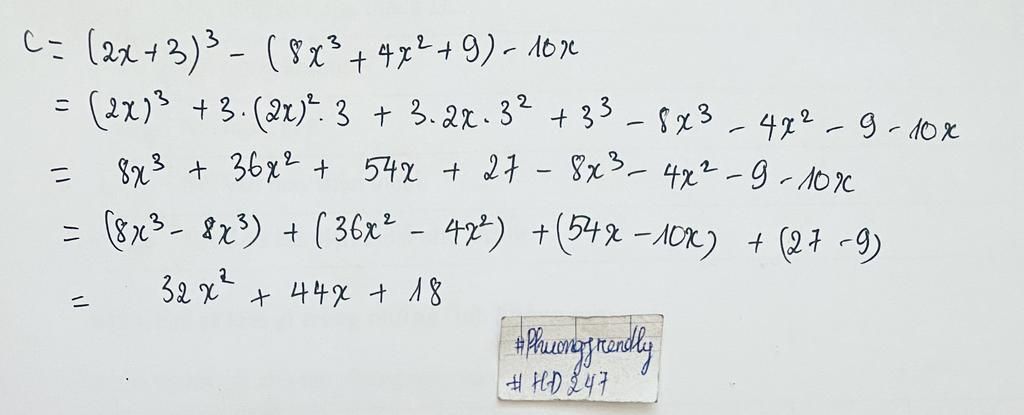 C = (2x+3)³ - (8x³ + 4x² + 9) - 10x
= (2x)³ + 3.(2x)².3 + 3.2x.3² + 3³ - 8x³ - 4x² - 9 - 10x
= 8x³ + 36x² + 54x + 27 - 8x³ - 4x² - 9 - 10x
= (8x³ - 8x³) + (36x² - 4x²) + (54x - 10x) + (27 - 9)
= 32x² + 44x + 18
#Phuongfrendly
#HD247